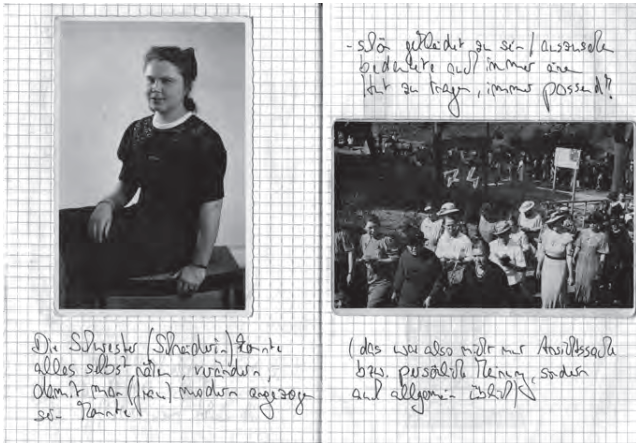 Die Schwester (Schneiderin) konnte
alles selbst nähen, verändern,
damit man (frau) modern angezogen
sein konnte
- schön gekleidet zu sein / auszusehen
bedeutete auch immer einen
Hut zu tragen, immer passend?
(das war also nicht nur Ansichtssache
bzw. persönliche Meinung, sondern
auch allgemein üblich?)